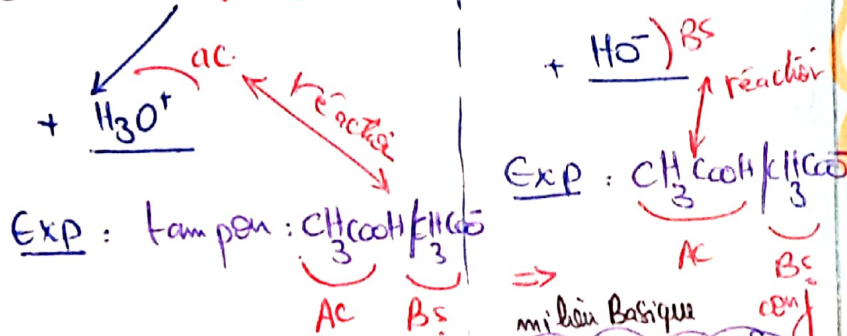 ac.
+ H3O+
réaction
Exp : tampon : CH3COOH/CH3COO-
AC Bs
+ HO- ) BS
réaction
Exp : CH3COOH/CH3COO-
AC Bs
conj
=> milieu Basique